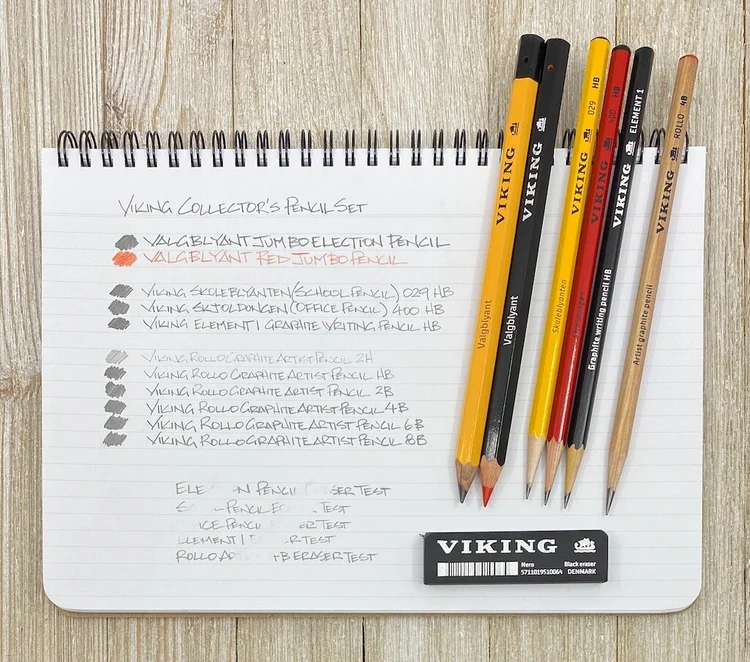 VIKING COLLECTOR'S PENCIL SET
VALGBLYANT JUMBO ELECTION PENCIL
VALGBLYANT RED JUMBO PENCIL
VIKING SKOLEBLYANTEN (SCHOOL PENCIL) 029 HB
VIKING SKJOLDUNGEN (OFFICE PENCIL) 400 HB
VIKING ELEMENT 1 GRAPHITE WRITING PENCIL HB
VIKING ROLLO GRAPHITE ARTIST PENCIL 2H
VIKING ROLLO GRAPHITE ARTIST PENCIL HB
VIKING ROLLO GRAPHITE ARTIST PENCIL 2B
VIKING ROLLO GRAPHITE ARTIST PENCIL 4B
VIKING ROLLO GRAPHITE ARTIST PENCIL 6B
VIKING ROLLO GRAPHITE ARTIST PENCIL 8B
ELE N PENCIL SER TEST
PENCIL TEST
ICE PENCIL ER TEST
ELEMENT 1 ER TEST
ROLLO AR 4B ERASER TEST
Valgblyant VIKING
Valgblyant VIKING
Skoleblyanten VIKING 029 HB
VIKING 400 HB
Graphite writing pencil HB VIKING ELEMENT 1
Artist graphite pencil VIKING ROLLO 4B
VIKING
Nero Black eraser
5711019510064 DENMARK